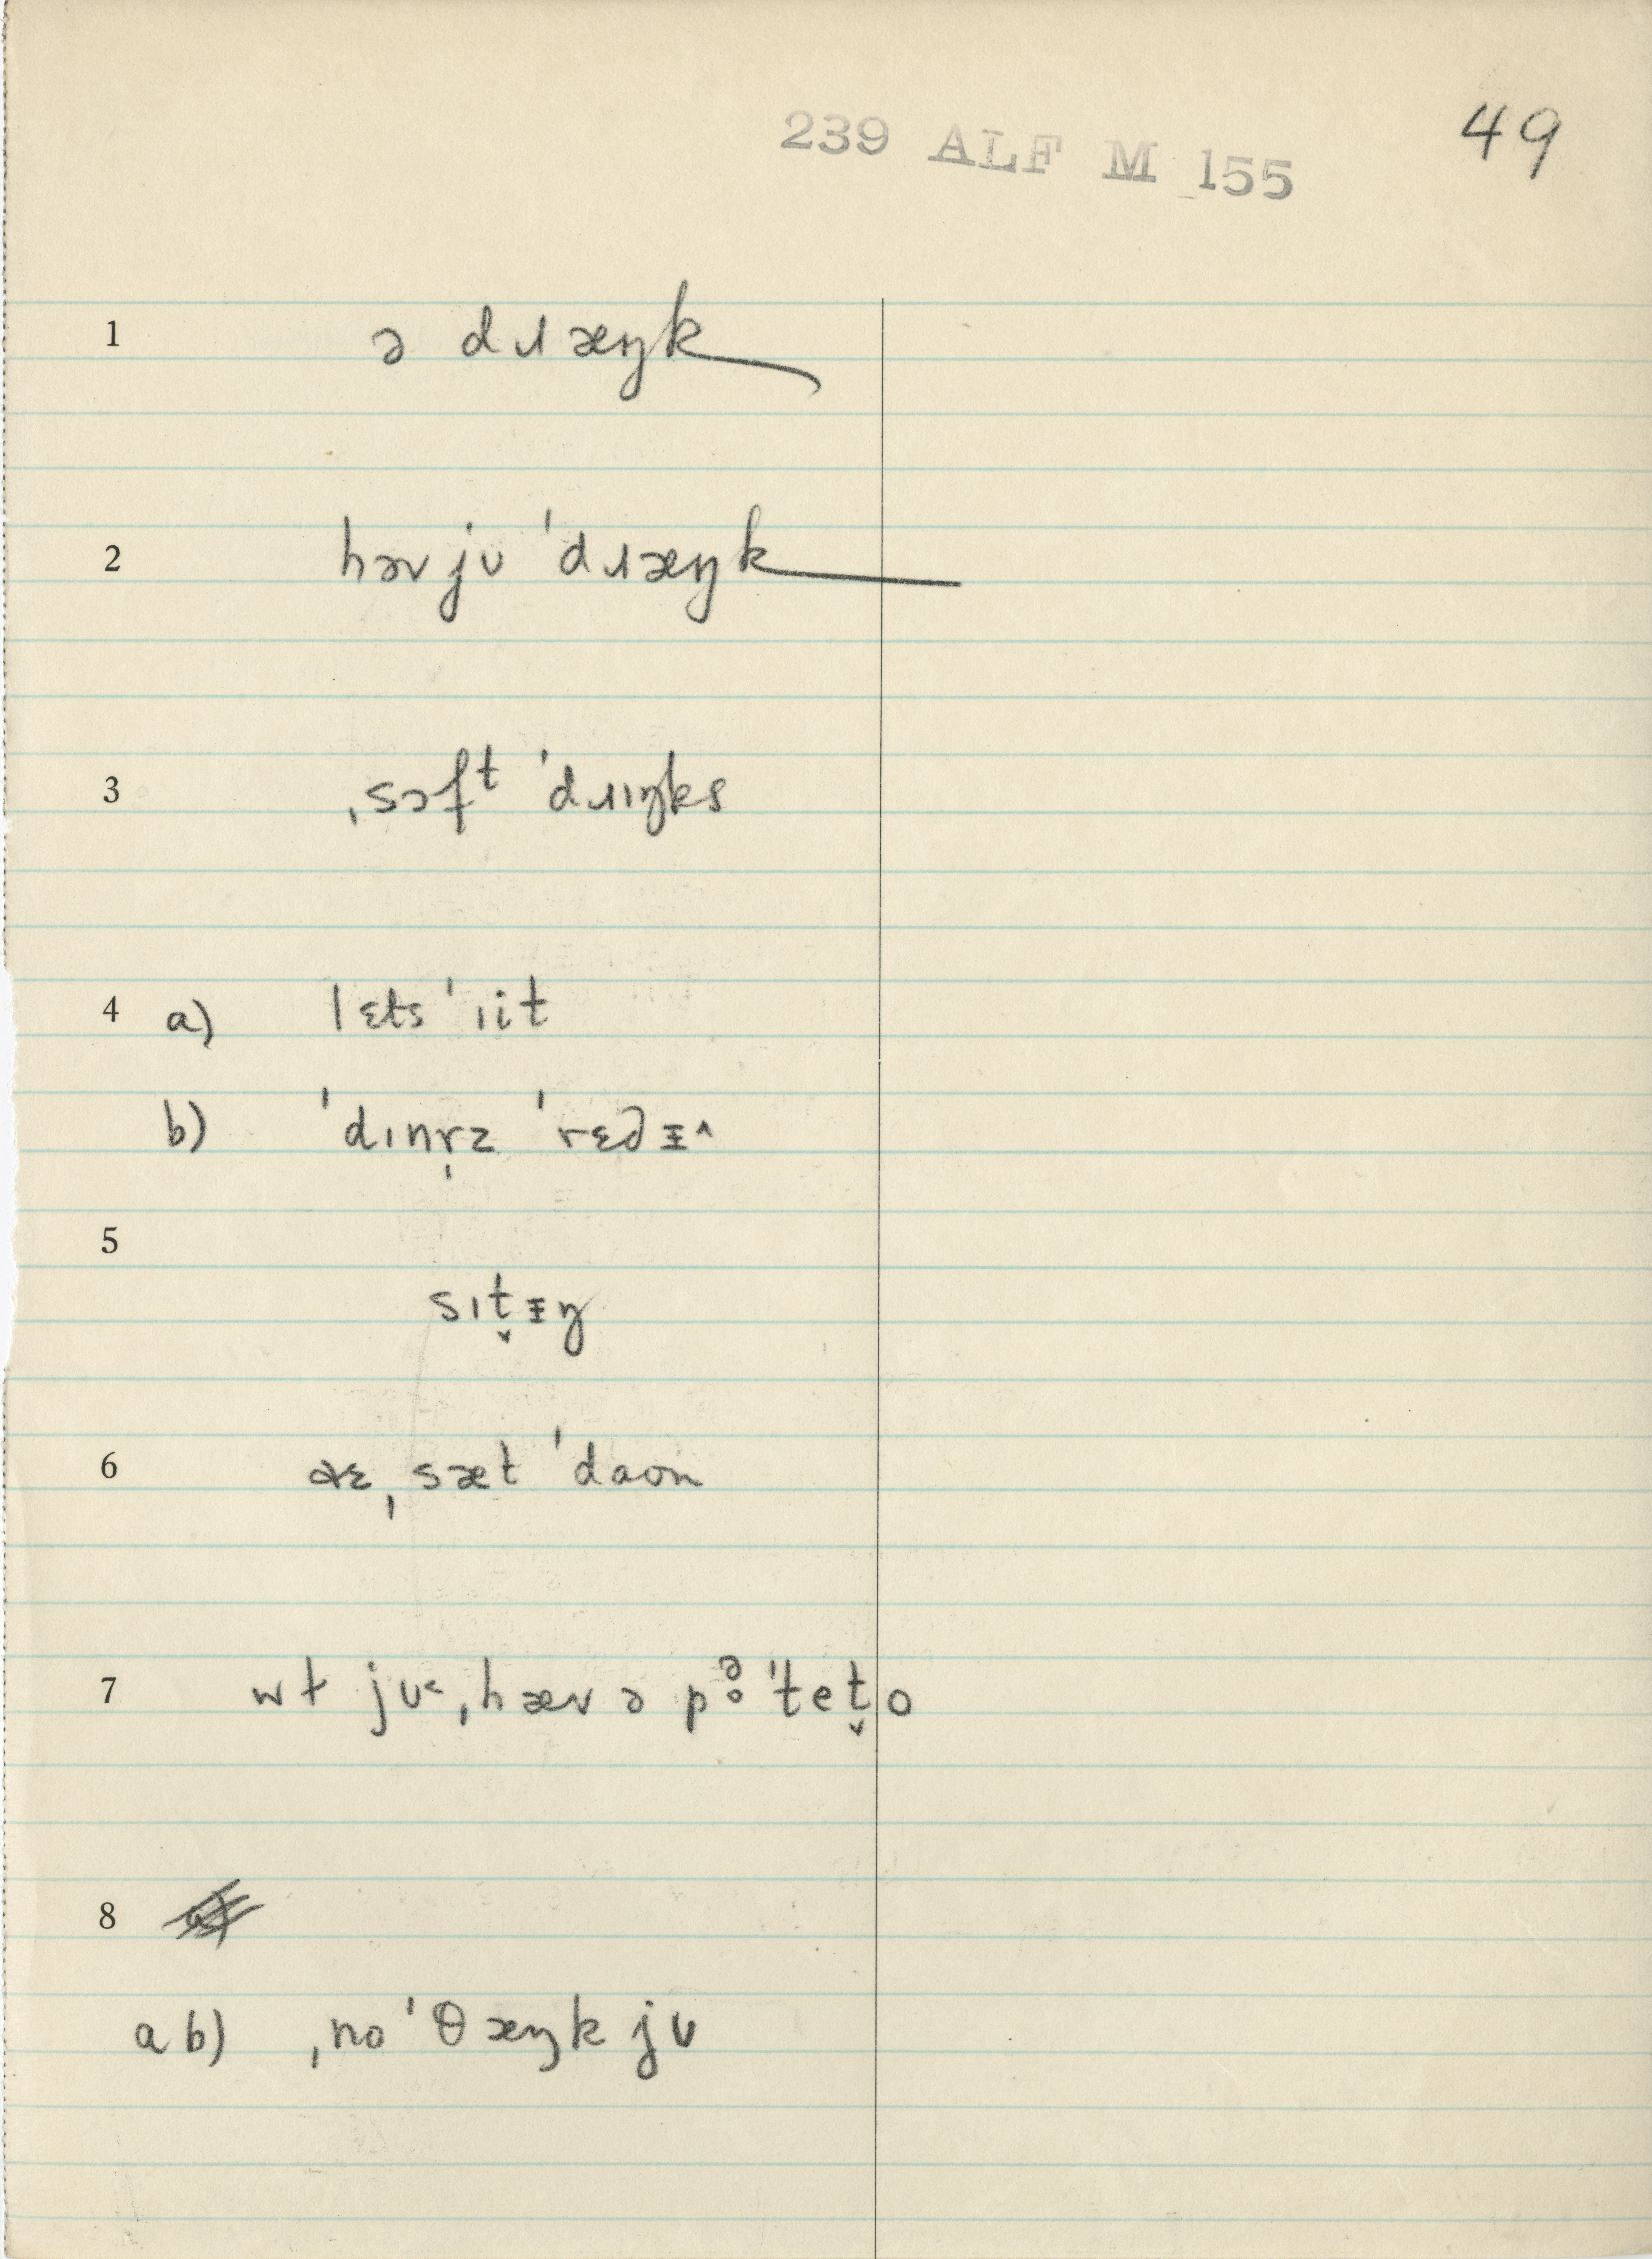 239 ALF M 155
49
1 ə dɹæŋk
2 həv jʊ ˈdɹæŋk
3 ˌsɔfᵗ ˈdɹɪŋks
4 a) lɛts ˈɪit
b) ˈdɪnr̩z ˈrɛdɪ̵^
5
sɪt̬ɪ̵ŋ
6 ˌsæt ˈdaʊn
7 wɫ jʊ˂ ˌhæv ə pə̥ˈtet̬o
8
a b) ˌno ˈθæŋk jʊ